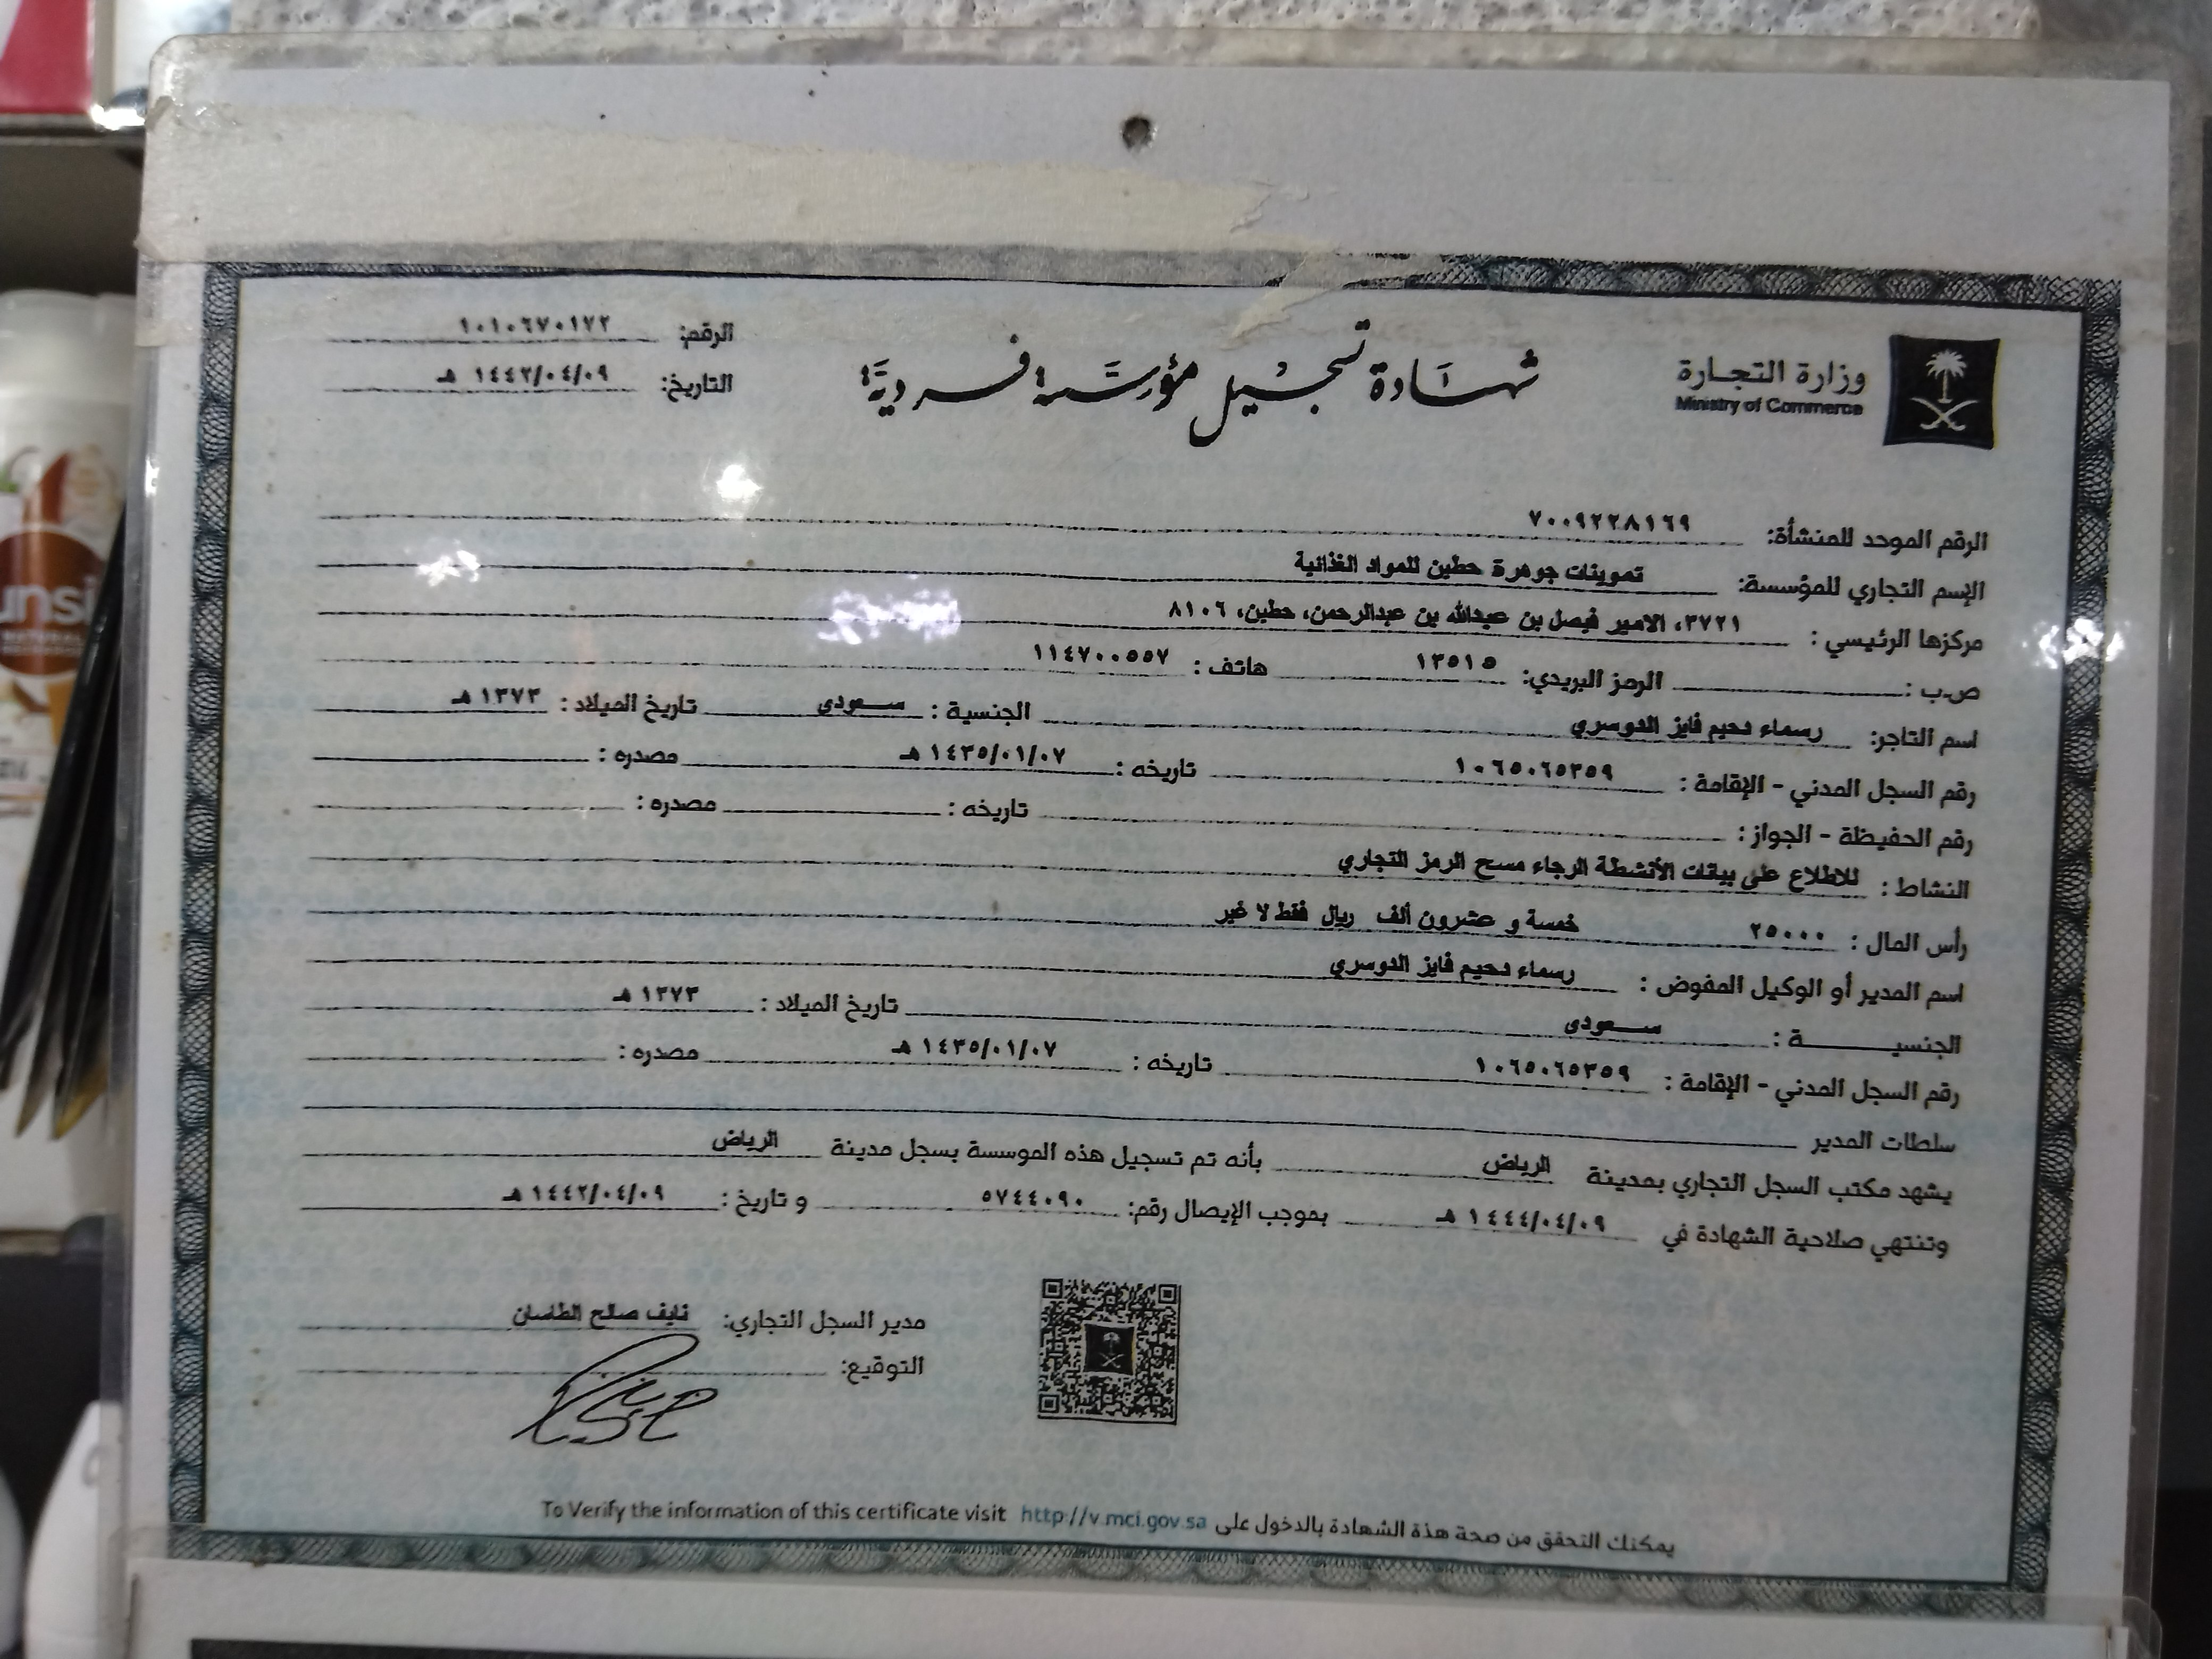 وزارة التجارة
Ministry of Commerce
شهادة تسجيل مؤسسة فردية
الرقم: ١٠١٠٦٧٠١٧٢
التاريخ: ١٤٤٢/٠٤/٠٩ هـ
الرقم الموحد للمنشأة: ٧٠٠٩٢٢٨١٦٩
الإسم التجاري للمؤسسة: تموينات جوهرة حطين للمواد الغذائية
مركزها الرئيسي : ٣٧٢١، الامير فيصل بن عبدالله بن عبدالرحمن، حطين، ٨١٠٦
ص.ب : الرمز البريدي: ١٣٥١٥ هاتف : ١١٤٧٠٠٥٥٧
اسم التاجر: رسماء دحيم فايز الدوسري الجنسية : سعودى تاريخ الميلاد : ١٣٧٣ هـ
رقم السجل المدني - الإقامة : ١٠٦٥٠٦٥٣٥٩ تاريخه : ١٤٣٥/٠١/٠٧ هـ مصدره :
رقم الحفيظة - الجواز : تاريخه : مصدره :
النشاط : للاطلاع على بيانات الأنشطة الرجاء مسح الرمز التجاري
رأس المال : ٢٥٠٠٠ خمسة و عشرون ألف ريال فقط لا غير
اسم المدير أو الوكيل المفوض : رسماء دحيم فايز الدوسري
الجنسيـــــة : سعودى تاريخ الميلاد : ١٣٧٣ هـ
رقم السجل المدني - الإقامة : ١٠٦٥٠٦٥٣٥٩ تاريخه : ١٤٣٥/٠١/٠٧ هـ مصدره :
سلطات المدير
يشهد مكتب السجل التجاري بمدينة الرياض بأنه تم تسجيل هذه الموسسة بسجل مدينة الرياض
وتنتهي صلاحية الشهادة في ١٤٤٤/٠٤/٠٩ هـ بموجب الإيصال رقم: ٥٧٤٤٠٩٠ و تاريخ : ١٤٤٢/٠٤/٠٩ هـ
مدير السجل التجاري: نايف صالح الطاسان
التوقيع:
يمكنك التحقق من صحة هذة الشهادة بالدخول على http://v.mci.gov.sa To Verify the information of this certificate visit